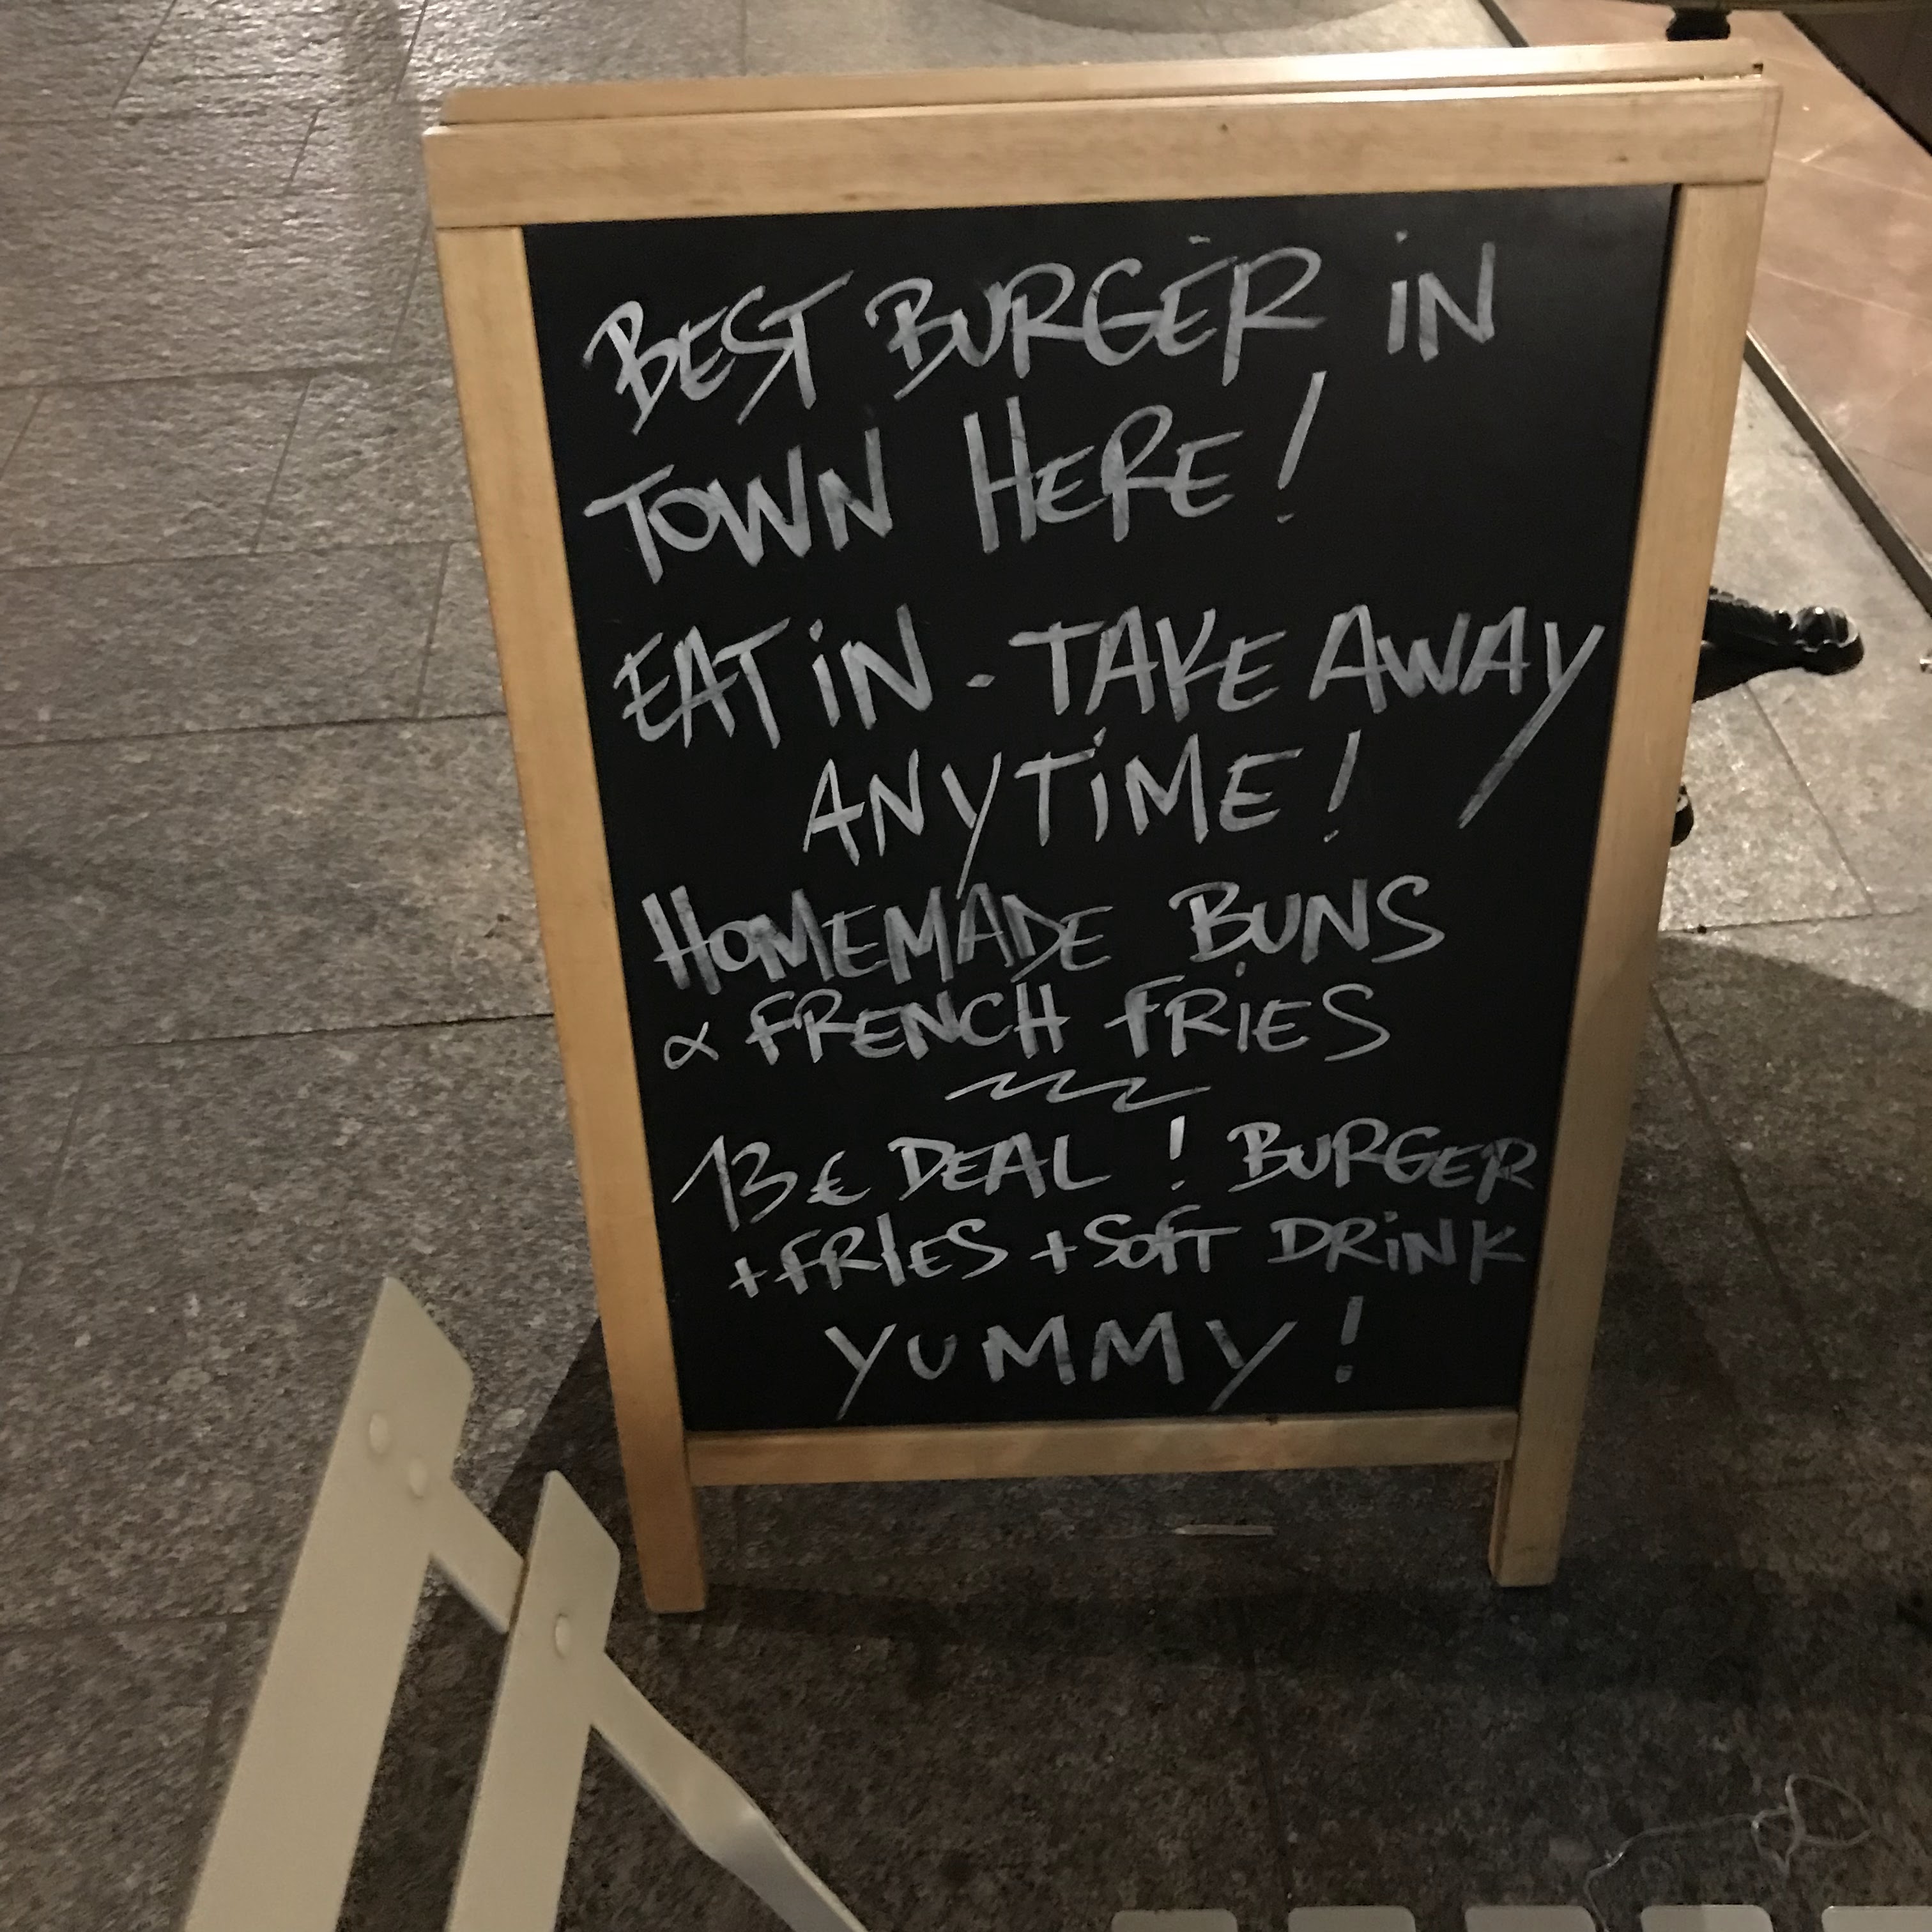 BEST BURGER IN
TOWN HERE!
EAT IN - TAKE AWAY
ANYTIME!
HOMEMADE BUNS
& FRENCH FRIES
13€ DEAL! BURGER
+FRIES +SOFT DRINK
YUMMY!